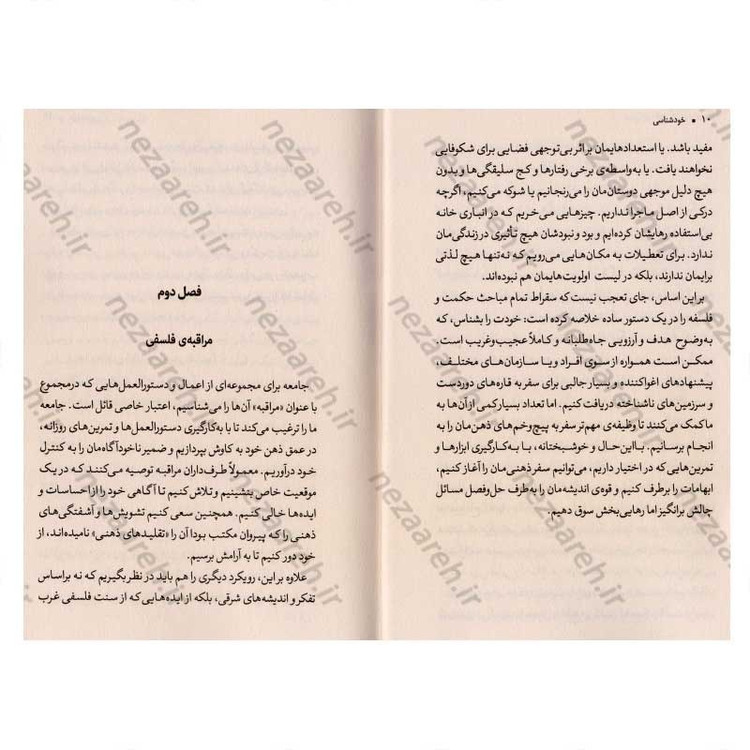 ۱۰ ■ خودشناسی
مفید باشد. یا استعدادهایمان بر اثر بی‌توجهی فضایی برای شکوفایی
نخواهند یافت. یا به‌واسطه‌ی برخی رفتارها و کج سلیقگی‌ها و بدون
هیچ دلیل موجهی دوستان‌مان را می‌رنجانیم یا شوکه می‌کنیم، اگرچه
درکی از اصل ماجرا نداریم. چیزهایی می‌خریم که در انباری خانه
بی‌استفاده رهایشان کرده‌ایم و بود و نبودشان هیچ تأثیری در زندگی‌مان
ندارد. برای تعطیلات به مکان‌هایی می‌رویم که نه‌تنها هیچ لذتی
برایمان ندارند، بلکه در لیست اولویت‌هایمان هم نبوده‌اند.
بر این اساس، جای تعجب نیست که سقراط تمام مباحث حکمت و
فلسفه را در یک دستور ساده خلاصه کرده است: خودت را بشناس، که
به‌وضوح هدف و آرزویی جاه‌طلبانه و کاملاً عجیب‌وغریب است.
ممکن است همواره از سوی افراد و یا سازمان‌های مختلف،
پیشنهادهای اغواکننده و بسیار جالبی برای سفر به قاره‌های دوردست
و سرزمین‌های ناشناخته دریافت کنیم. اما تعداد بسیار کمی از آن‌ها به
ما کمک می‌کنند تا وظیفه‌ی مهم‌تر سفر به پیچ‌وخم‌های ذهن‌مان را به
انجام برسانیم. با این‌حال و خوشبختانه، با به‌کارگیری ابزارها و
تمرین‌هایی که در اختیار داریم، می‌توانیم سفر ذهنی‌مان را آغاز کنیم،
ابهامات را برطرف کنیم و قوه‌ی اندیشه‌مان را به‌طرف حل‌وفصل مسائل
چالش برانگیز اما رهایی‌بخش سوق دهیم.
فصل دوم
مراقبه‌ی فلسفی
جامعه برای مجموعه‌ای از اعمال و دستورالعمل‌هایی که درمجموع
با عنوان «مراقبه» آن‌ها را می‌شناسیم، اعتبار خاصی قائل است. جامعه
ما را ترغیب می‌کند تا با به‌کارگیری دستورالعمل‌ها و تمرین‌های روزانه،
در عمق ذهن خود به کاوش بپردازیم و ضمیر ناخودآگاه‌مان را به کنترل
خود درآوریم. معمولاً طرف‌داران مراقبه توصیه می‌کنند که در یک
موقعیت خاص بنشینیم و تلاش کنیم تا آگاهی خود را از احساسات و
ایده‌ها خالی کنیم. همچنین سعی کنیم تشویش‌ها و آشفتگی‌های
ذهنی را که پیروان مکتب بودا آن را «تقلیدهای ذهنی» نامیده‌اند، از
خود دور کنیم تا به آرامش برسیم.
علاوه بر این، رویکرد دیگری را هم باید در نظر بگیریم که نه براساس
تفکر و اندیشه‌های شرقی، بلکه از ایده‌هایی که از سنت فلسفی غرب
nezaareh.ir
nezaareh.ir
nezaareh.ir
nezaareh.ir
nezaareh.ir
nezaareh.ir
nezaareh.ir
nezaareh.ir